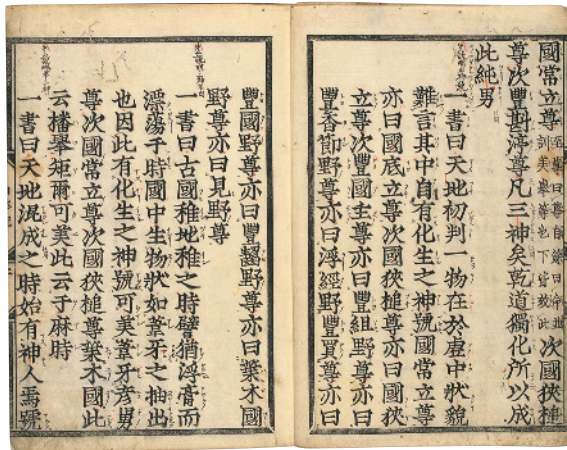 國常立尊至貴曰尊自餘曰命並訓美擧等也下皆效此次國狹槌
尊次豐斟渟尊凡三神矣乾道獨化所以成
此純男
一書曰天地初判一物在於虛中狀貌
難言其中自有化生之神號國常立尊
亦曰國底立尊次國狹槌尊亦曰國狹
立尊次豐國主尊亦曰豐組野尊亦曰
豐香節野尊亦曰浮經野豐買尊亦曰
豐國野尊亦曰豐齧野尊亦曰葉木國
野尊亦曰見野尊
一書曰古國稚地稚之時譬猶浮膏而
漂蕩于時國中生物狀如葦牙之抽出
也因此有化生之神號可美葦牙彦舅
尊次國常立尊次國狹槌尊葉木國此
云播擧矩爾可美此云于麻時
一書曰天地混成之時始有神人焉號